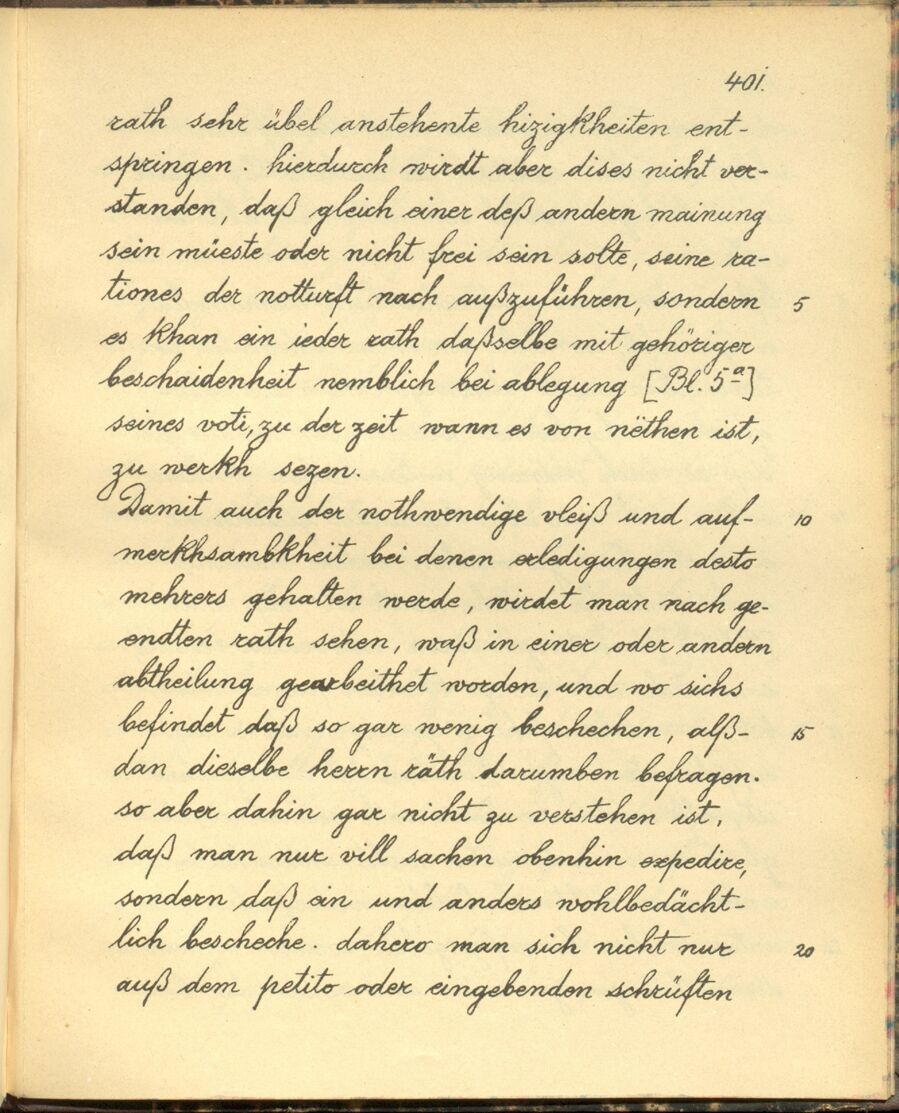 401.
rath sehr übel anstehente hizigkheiten ent-
springen. hierdurch wirdt aber dises nicht ver-
standen, daß gleich einer deß andern mainung
sein müeste oder nicht frei sein solte, seine ra-
tiones der notturft nach außzuführen, sondern 5
es khan ein ieder rath daßselbe mit gehöriger
beschaidenheit nemblich bei ablegung [Bl. 5a]
seines voti, zu der zeit wann es von nëthen ist,
zu werkh sezen.
Damit auch der nothwendige vleiß und auf- 10
merkhsambkheit bei denen erledigungen desto
mehrers gehalten werde, wirdet man nach ge-
endten rath sehen, waß in einer oder andern
abtheilung gearbeithet worden, und wo sichs
befindet daß so gar wenig beschechen, alß- 15
dan dieselbe herrn räth darumben befragen.
so aber dahin gar nicht zu verstehen ist,
daß man nur vill sachen obenhin expedire,
sondern daß ein und anders wohlbedächt-
lich bescheche. dahero man sich nicht nur 20
auß dem petito oder eingebenden schrüften